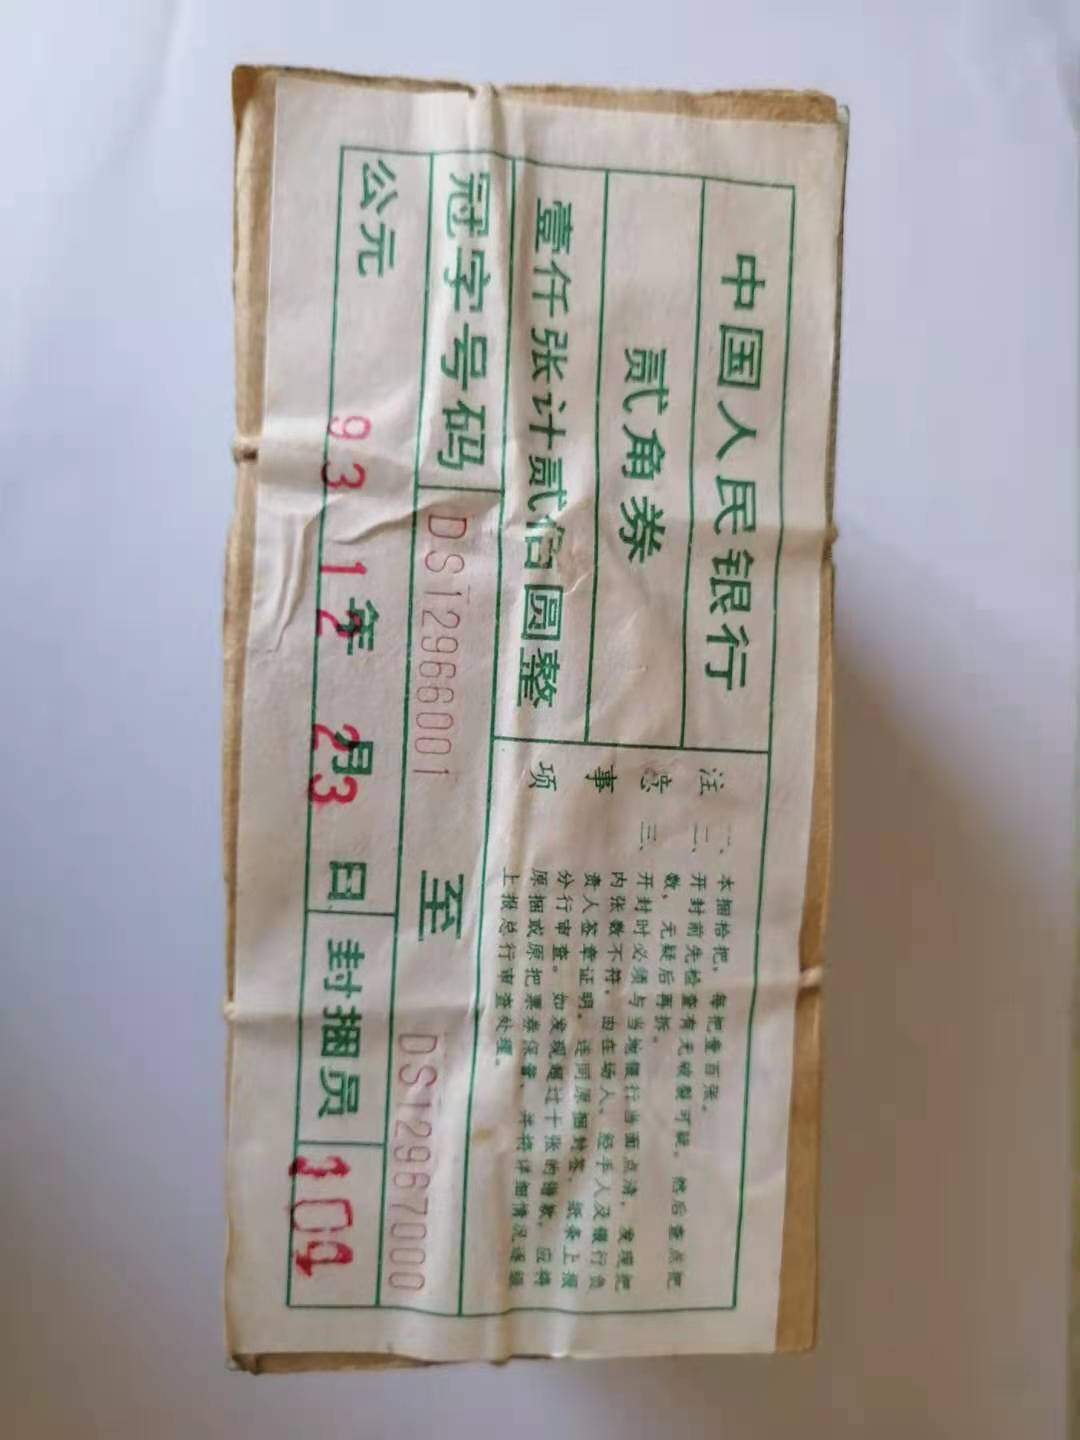 中国人民银行
贰角券
壹仟张计贰佰圆整
注意事项
一、本捆拾把，每把壹百张。
二、开封前先检查有无破裂可疑，然后查点把
数，无疑后再拆。
三、开封时必须与当地银行当面点清，发现把
内张数不符，由在场人、经手人及银行负
责人签章证明，连同原捆封签、纸条上报
分行审查。如发现超过十张的错款，应将
原捆或原把票券保管，并将详细情况逐级
上报总行审查处理。
冠字号码 DS12966001 至 DS12967000
公元 93年12月23日 封捆员